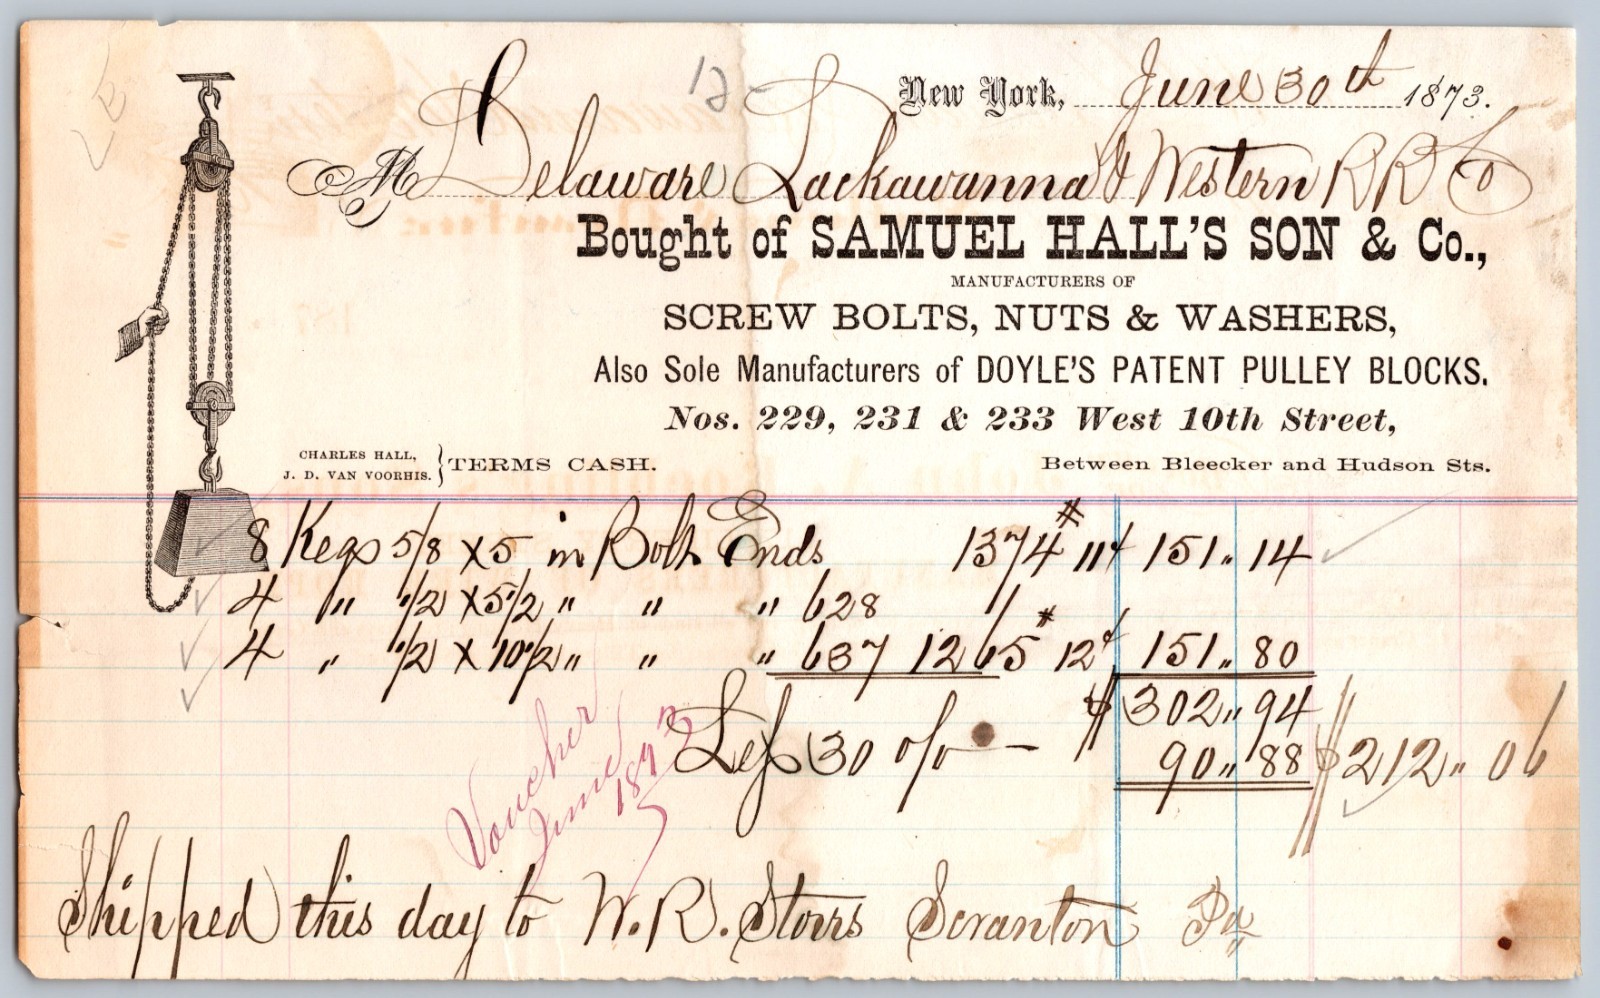 12
New York, June 30th 1873.
M Delaware Lackawanna & Western RR Co
Bought of SAMUEL HALL'S SON & Co.,
MANUFACTURERS OF
SCREW BOLTS, NUTS & WASHERS,
Also Sole Manufacturers of DOYLE'S PATENT PULLEY BLOCKS.
Nos. 229, 231 & 233 West 10th Street,
CHARLES HALL,
J. D. VAN VOORHIS. } TERMS CASH.
Between Bleecker and Hudson Sts.
8 Kegs 5/8 x 5 in Bolt Ends 1374# 11¢ 151.. 14
4 " 1/2 x 5 1/2 " " " 628
4 " 1/2 x 10 1/2 " " " 637 1265# 12¢ 151.. 80
$ 302.. 94
Less 30 o/o — 90.. 88 $ 212.. 06
Voucher
June
1873
Shipped this day to W. R. Storrs Scranton Pa